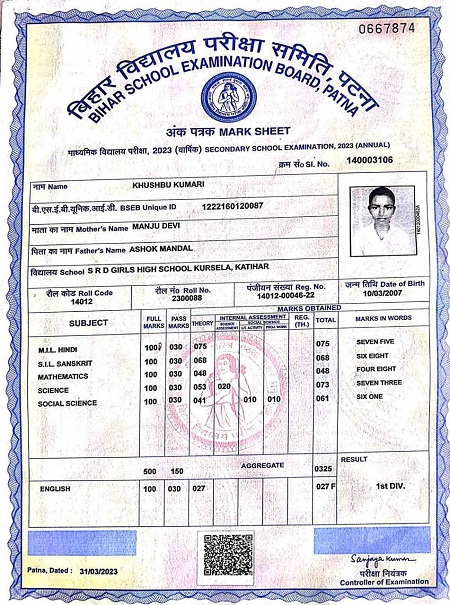 0667874
बिहार विद्यालय परीक्षा समिति, पटना
BIHAR SCHOOL EXAMINATION BOARD, PATNA
अंक पत्रक MARK SHEET
माध्यमिक विद्यालय परीक्षा, 2023 (वार्षिक) SECONDARY SCHOOL EXAMINATION, 2023 (ANNUAL)
क्रम सं० Sl. No. 140003106
नाम Name KHUSHBU KUMARI
बी.एस.ई.बी.यूनिक.आई.डी. BSEB Unique ID 1222160120087
माता का नाम Mother's Name MANJU DEVI
पिता का नाम Father's Name ASHOK MANDAL
विद्यालय School S R D GIRLS HIGH SCHOOL KURSELA, KATIHAR
रौल कोड Roll Code रौल नं० Roll No. पंजीयन संख्या Reg. No. जन्म तिथि Date of Birth
14012 2300088 14012-00046-22 10/03/2007
MARKS OBTAINED
SUBJECT FULL MARKS PASS MARKS THEORY INTERNAL ASSESSMENT REG. (TH.) TOTAL MARKS IN WORDS
SCIENCE ASSESSMENT SOCIAL SCIENCE
LIT. ACTIVITY PROJ. WORK
M.I.L. HINDI 100 030 075 075 SEVEN FIVE
S.I.L. SANSKRIT 100 030 068 068 SIX EIGHT
MATHEMATICS 100 030 048 048 FOUR EIGHT
SCIENCE 100 030 053 020 073 SEVEN THREE
SOCIAL SCIENCE 100 030 041 010 010 061 SIX ONE
500 150 AGGREGATE 0325 RESULT
ENGLISH 100 030 027 027 F 1st DIV.
Patna, Dated : 31/03/2023
Sanjaya Kumar
परीक्षा नियंत्रक
Controller of Examination